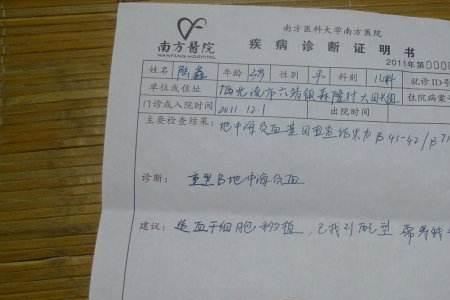 南方医科大学南方医院
南方醫院
NANFANG HOSPITAL
疾病诊断证明书
2011年第0000
姓名 陈鑫 年龄 3岁 性别 科别 儿科 就诊ID号
单位或住址 住院病案号
门诊或入院时间 2011.12.1 出院时间
主要检查结果: 地中海贫血基因检查结果为β41-42/β
诊断: 重型β地中海贫血
建议: 造血干细胞移植,已找到配型